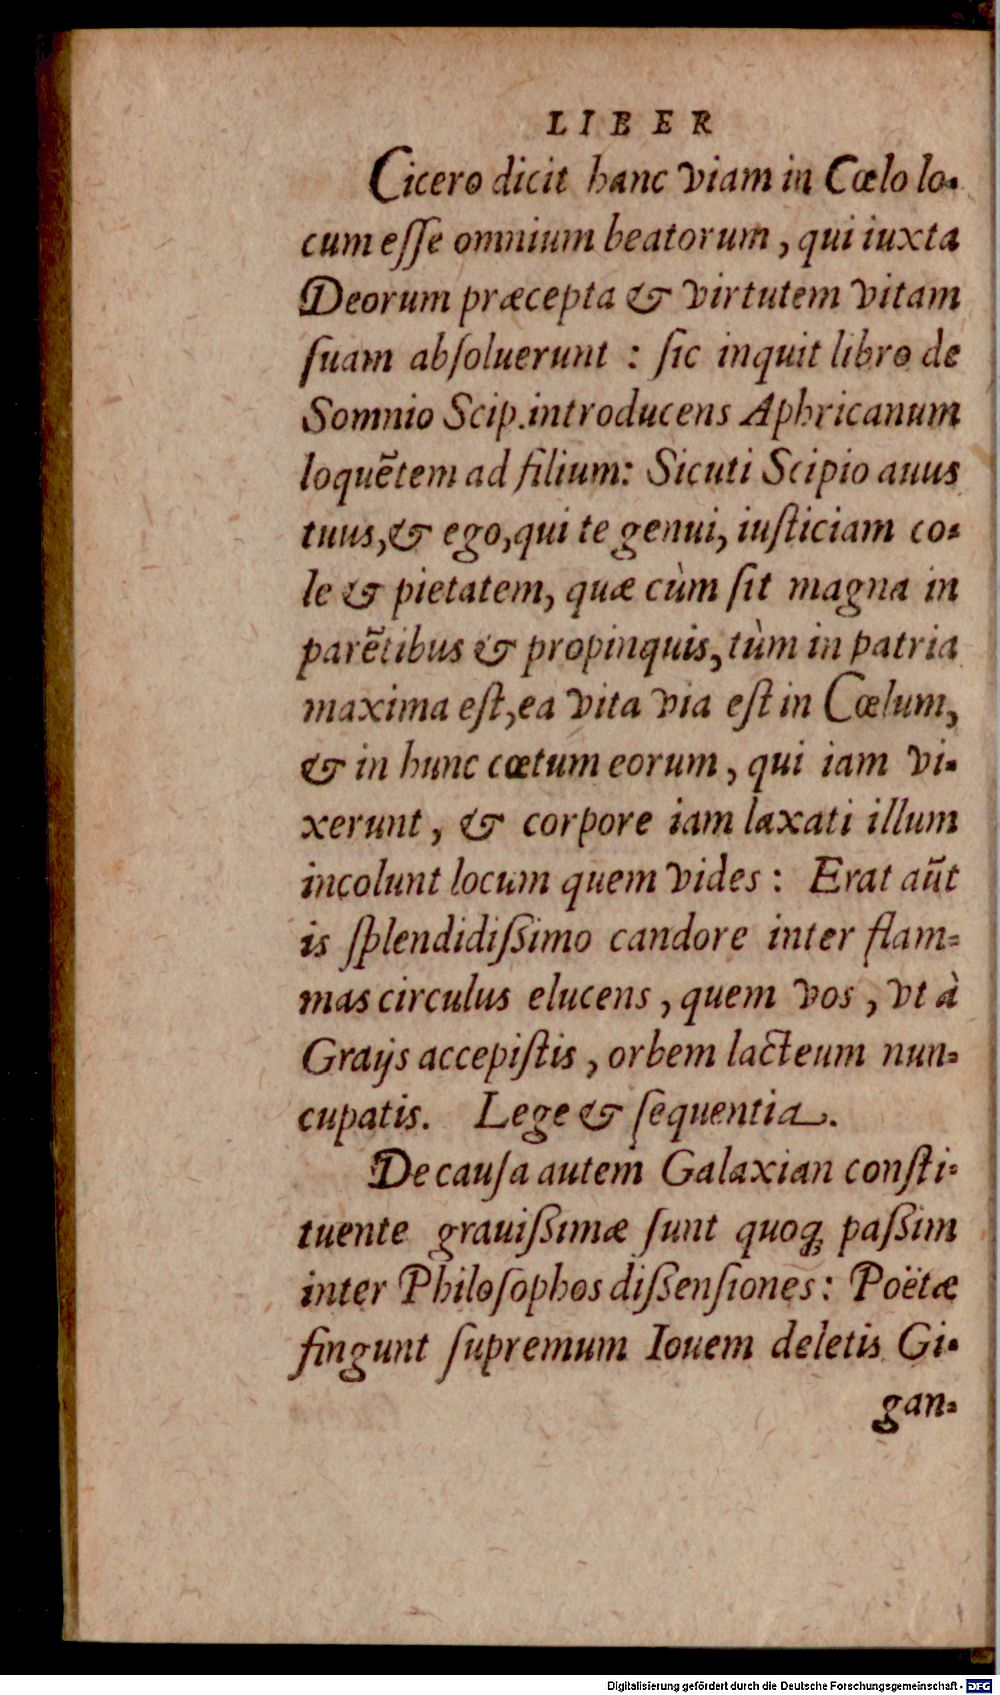 LIBER
Cicero dicit hanc viam in Cœlo lo-
cum eſſe omnium beatorum, qui iuxta
Deorum præcepta & virtutem vitam
ſuam abſoluerunt : ſic inquit libro de
Somnio Scip. introducens Aphricanum
loquẽtem ad filium: Sicuti Scipio auus
tuus, & ego, qui te genui, iuſticiam co-
le & pietatem, quæ cùm ſit magna in
parẽtibus & propinquis, tùm in patria
maxima eſt, ea vita via eſt in Cœlum,
& in hunc cœtum eorum, qui iam vi-
xerunt, & corpore iam laxati illum
incolunt locum quem vides : Erat aũt
is ſplendidiſſimo candore inter flam-
mas circulus elucens, quem vos, vt à
Graijs accepiſtis, orbem lacteum nun-
cupatis. Lege & ſequentia.
De cauſa autem Galaxian conſti-
tuente grauiſſimæ ſunt quoq; paſſim
inter Philoſophos diſſenſiones: Poëtæ
fingunt ſupremum Iouem deletis Gi-
gan-
Digitalisierung gefördert durch die Deutsche Forschungsgemeinschaft - DFG